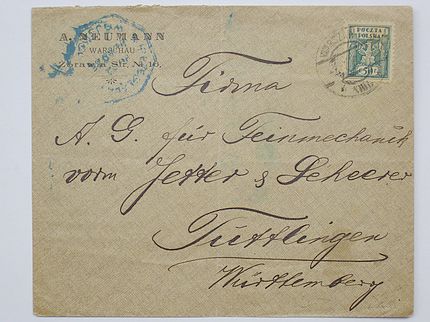 A. NEUMANN
WARSCHAU
Zórawia Str. № 16.
POCZTA
POLSKA
Firma
A. G. für Feinmechanik
vorm Jetter & Scheerer
Tuttlingen
Württemberg